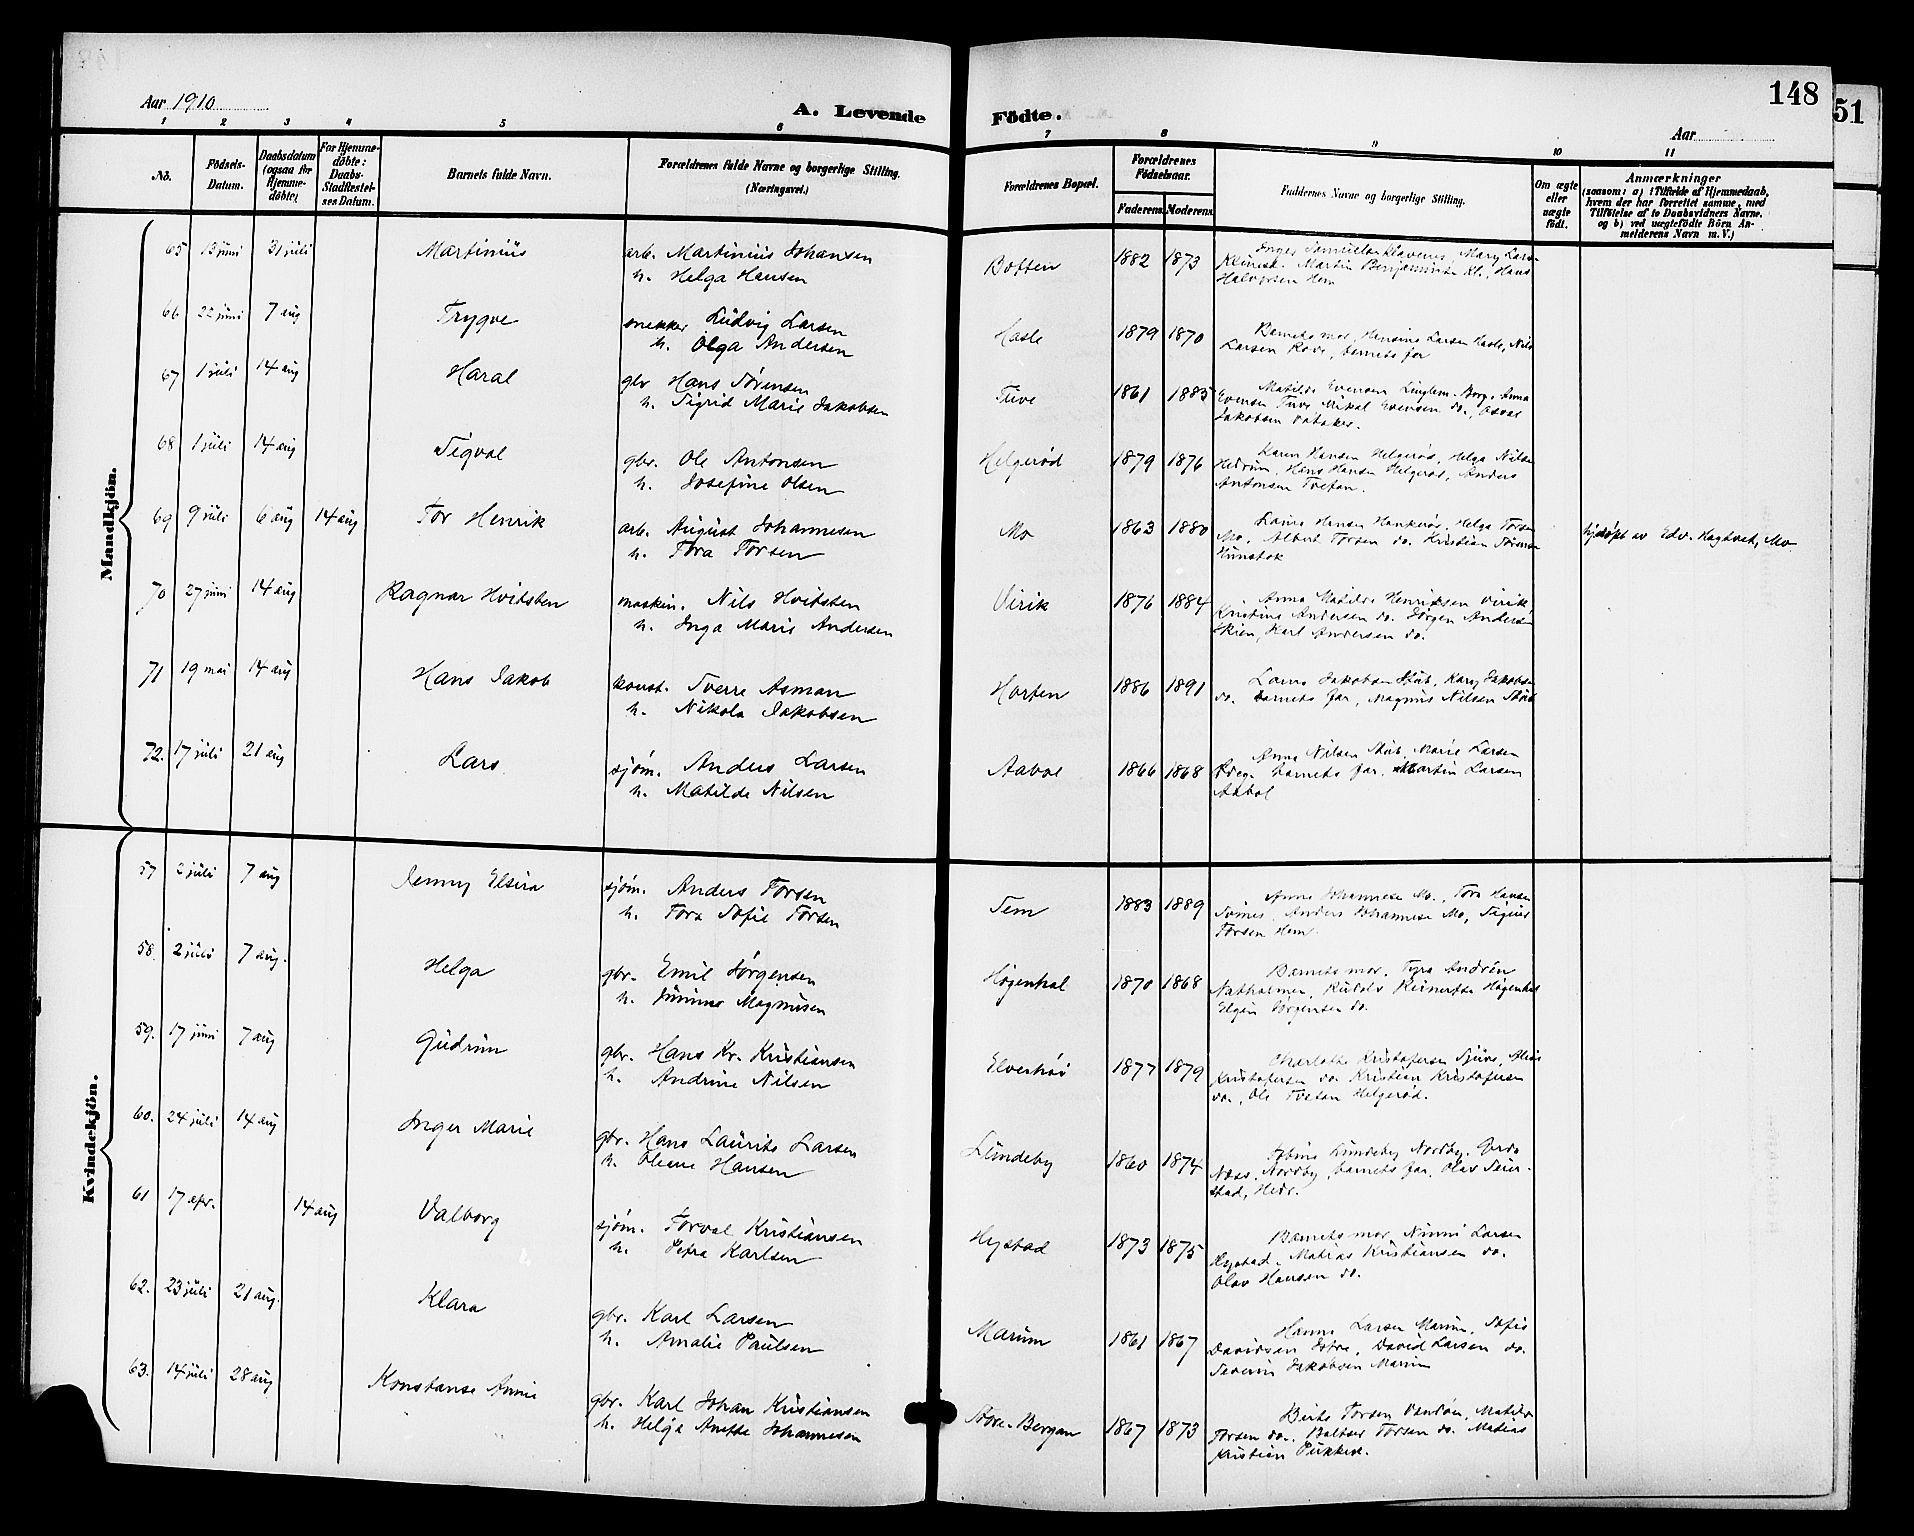 148
51
Aar 1910
A. Levende Födte.
Aar
1 2 3 4 5 6 7 8 9 10 11
No.
Födsels-Datum.
Daabsdatum (ogsaa for Hjemme-döbte)
For Hjemme-döbte: Daabs-Stadfæstel-ses Datum.
Barnets fulde Navn.
Forældrenes fulde Navne og borgerlige Stilling. (Næringsvei.)
Forældrenes Bopæl.
Forældrenes Födselsaar.
Faderens. Moderens.
Faddernes Navne og borgerlige Stilling.
Om ægte eller uægte födt.
Anmærkninger
(saasom: a) i Tilfælde af Hjemmedaab, hvem der har forrettet samme, med Tilföielse af to Daabsvidners Navne, og b) ved uægtefödte Börn An-melderens Navn m. V.)
Mandkjön.
65 13 juni 31 juli Martinius arb. Martinius Johansen Boften 1882 1873 Mary Lars
h. Helga Hansen Martin Benjaminsen Kl., Hans
Halvorsen Hem
66 22 juni 7 aug Trygve snekker Ludvig Larsen Hasle 1879 1870 Barnets mor, Hansine Larsen Hasle, Nils
h. Olga Andersen Larsen barnets far
67 1 juli 14 aug Haral gbr Hans Sørensen Tuve 1861 1885 Matilde Evensen Borg, Anna
h. Sigrid Marie Jakobsen Evensen Tuve Mikal Evensen do.,
Jakobsen
68 1 juli 14 aug Sigval gbr. Ole Antonsen Helgerød 1879 1876 Karen Hansen Helgerød, Helga Nilsen
h. Josefine Olsen Hedrum, Hans Hansen Helgerød, Anders
Antonsen Tvetan.
69 9 juli 6 aug 14 aug Tor Henrik arb. August Johannesen Mo 1863 1880 Hansen Helga Torsen hjdøpt av Edv. Hagtvet, Mo
h. Tora Torsen Mo, Albert Torsen do. Kristian
70 27 juni 14 aug Ragnar Hvidsten maskin. Nils Hvitsten Virik 1876 1884 Anna Matilde Henriksen Virik,
h. Inga Marie Andersen Kristine Andersen do. Jørgen Andersen
Skien, Karl Andersen do.
71 19 mai 14 aug Hans Jakob konst. Sverre Asman Horten 1886 1891 Jakobsen Stub, Jakobsen
h. Nikola Jakobsen do. barnets far, Magnus Nilsen Stub
72. 17 juli 21 aug Lars sjøm. Anders Larsen Aabol 1866 1868 Anna Nilsen Stub, Marie Larsen
h. Matilde Nilsen barnets far, Martin Larsen
Aabol
Kvindekjön.
57 2 juli 7 aug Jenny Elvira sjøm. Anders Torsen Sem 1883 1889 Anne Johannese Mo., Tora Hansen
h. Tora Sofie Torsen Anders Johannese Mo,
Torsen Hem.
58. 2 juli 7 aug. Helga gbr. Emil Jørgensen Høgenhal 1870 1868 Barnets mor,
h. Magnusen Høgenhal
Jørgensen do.
59. 17 juni 7 aug Gudrun gbr. Hans Kr. Kristiansen Elverhøi 1877 1879 Charlotte Kristofersen
h. Andrine Nilsen Kristofersen do Kristian Kristofersen
do., Ole Tvetan Helgerød.
60. 24 juli 14 aug Inger Marie gbr. Hans Laurits Larsen Lundeby 1860 1874 Lundeby Nordby,
h. Olene Hansen Næss, Nordby, barnets far, Olav
stad, Hedr.
61 17 apr. 14 aug Valborg sjøm. Torval Kristiansen Hystad 1873 1875 Barnets mor, Ninni Larsen
h. Petra Karlsen Hystad, Matias Kristiansen do.
Olav Hansen do.
62. 23 juli 21 aug. Klara gbr. Karl Larsen Marum 1861 1867 Hanna Larsen Marum, Sofie
h. Amalie Paulsen Davidsen David Larsen do.
Severin Jakobsen Marum
63. 14 juli 28 aug Konstanse Annie gbr. Karl Johan Kristiansen Store-Bergan 1867 1873 Torsen Matilde
h. Helga Anette Johannesen Torsen do. Torsen do. Matias
Kristian